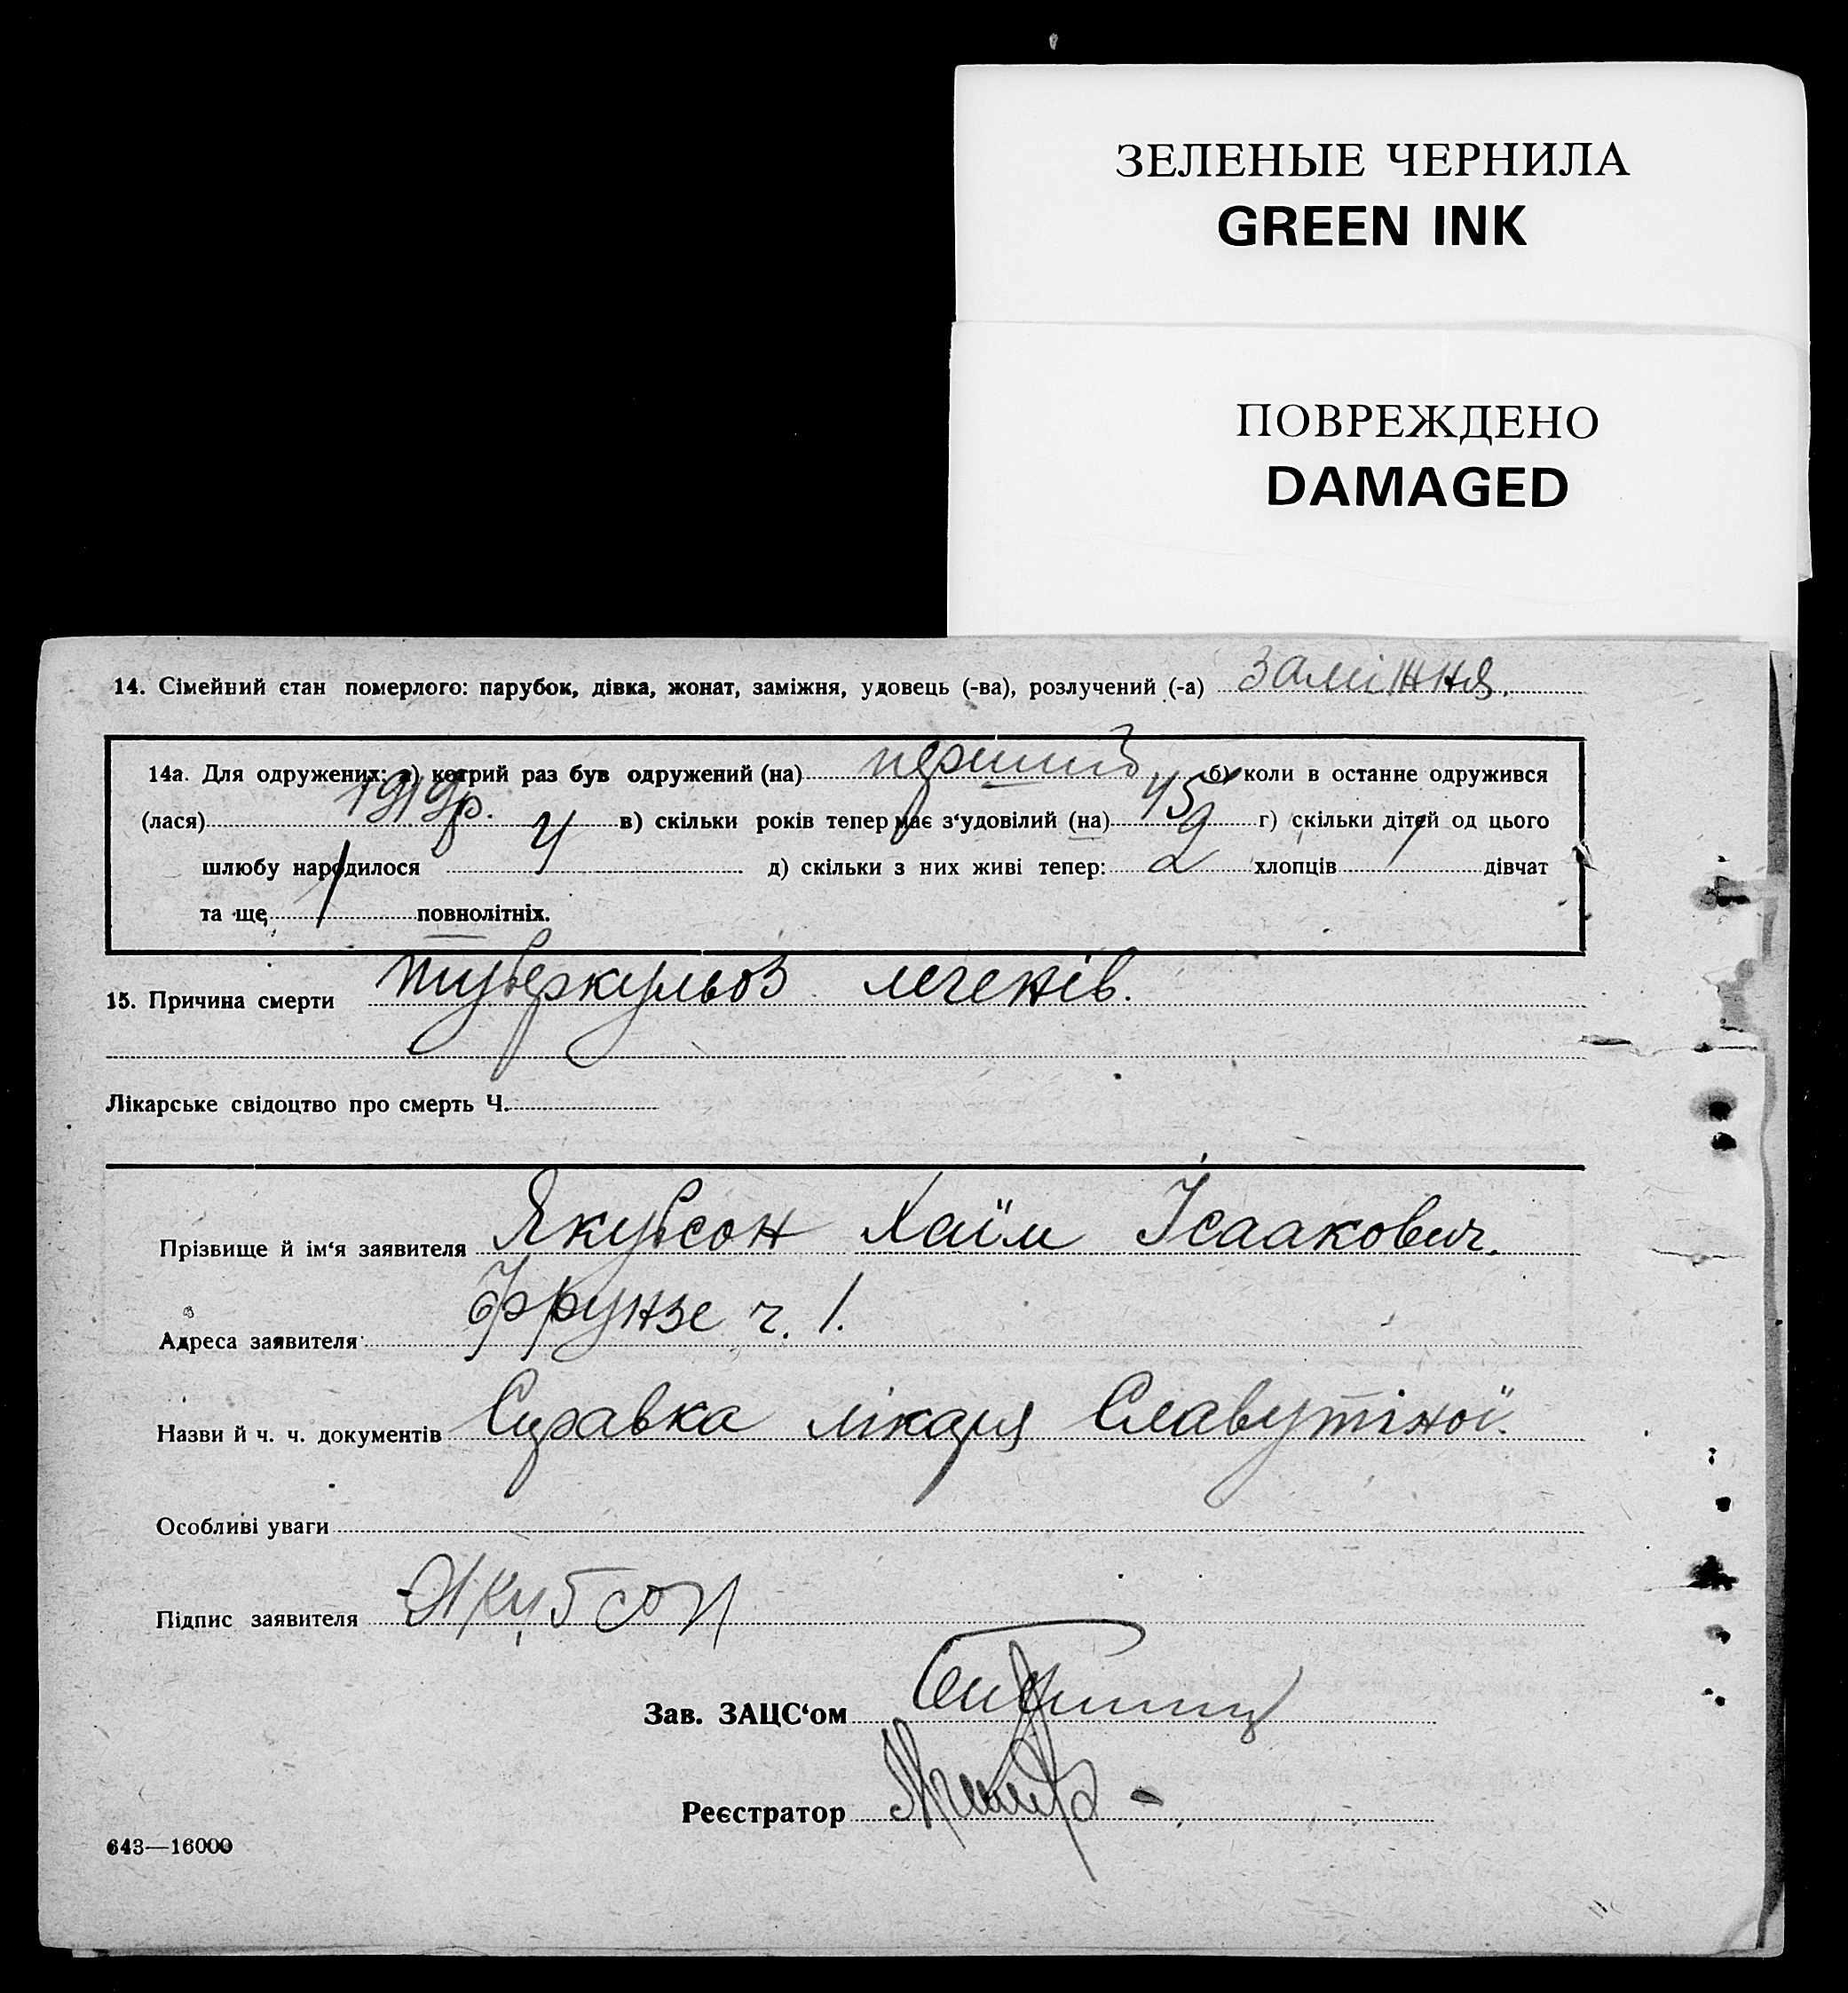 ЗЕЛЕНЫЕ ЧЕРНИЛА
GREEN INK
ПОВРЕЖДЕНО
DAMAGED
14. Сімейний стан померлого: парубок, дівка, жонат, заміжня, удовець (-ва), розлучений (-а) заміжня.
14а. Для одружених: а) котрий раз був одружений (на) перший б) коли в останне одружився
(лася) 1919р. в) скільки років тепер має з‘удовілий (на) 45 г) скільки дітей од цього
шлюбу народилося 4 д) скільки з них живі тепер: 2 хлопців 1 дівчат
та ще 1 повнолітніх.
15. Причина смерти туберкульоз легенів.
Лікарське свідоцтво про смерть Ч.
Прізвище й ім‘я заявителя Якубсон Хаїм Ісаакович.
Адреса заявителя Фрунзе ч. 1.
Назви й ч. ч. документів Справка лікаря Славутіної.
Особливі уваги
Підпис заявителя Якубсон
Зав. ЗАЦС‘ом
Реєстратор
643—16000